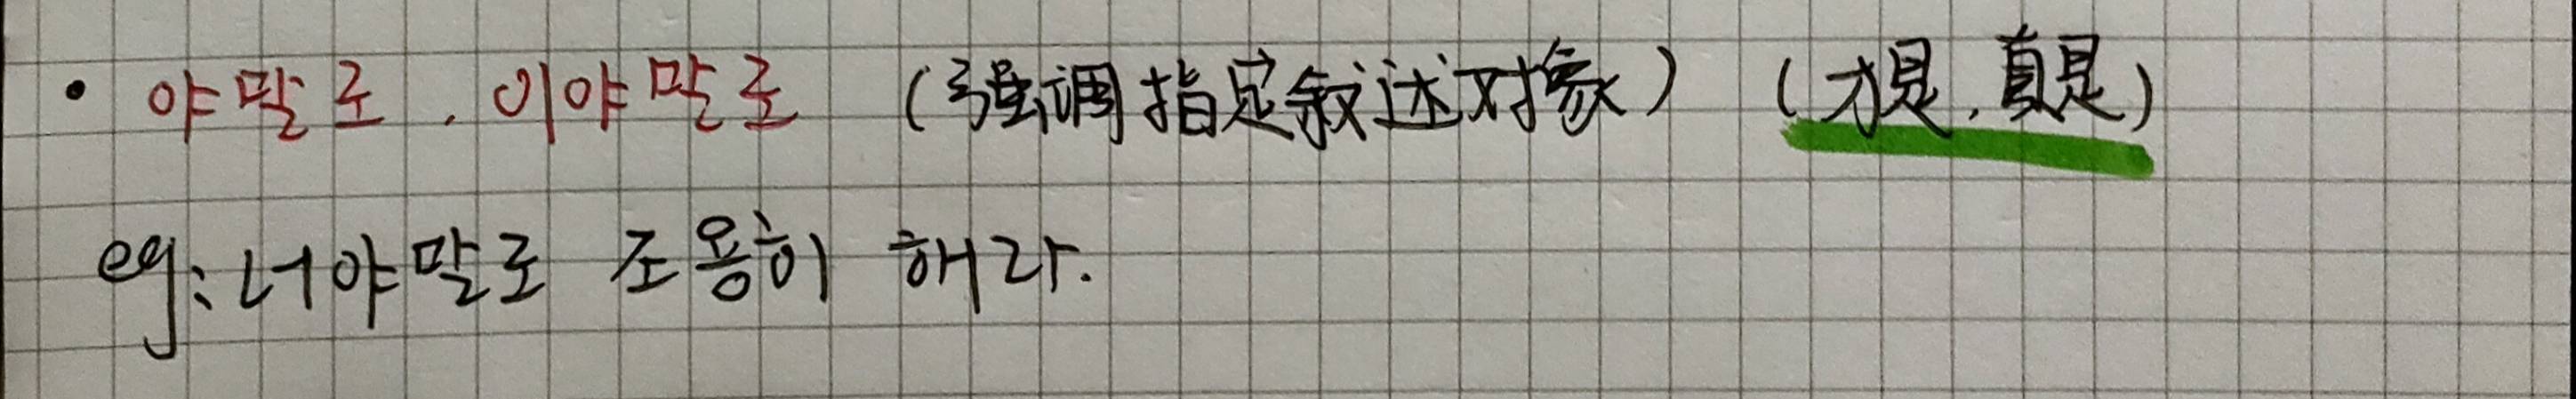 • 야말로, 이야말로 (强调指定叙述对象) (才是, 真是)
eg: 너야말로 조용히 해라.